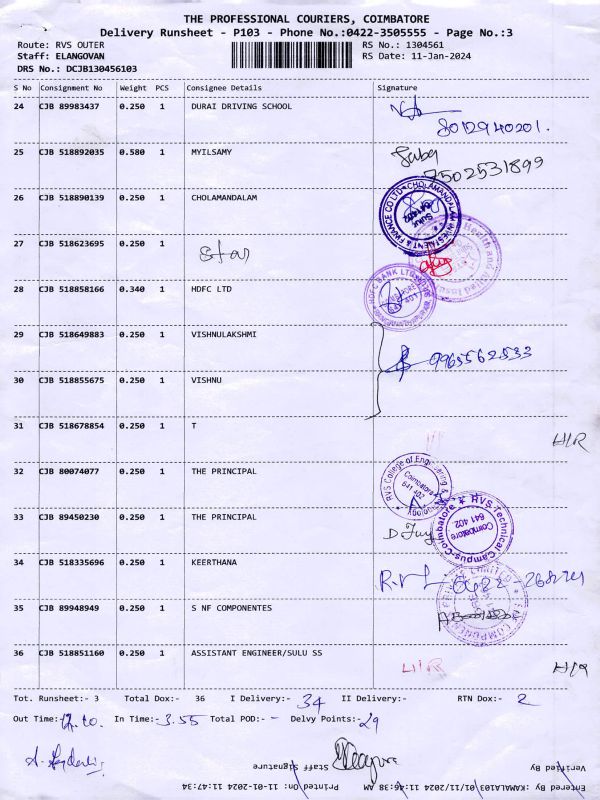 THE PROFESSIONAL COURIERS, COIMBATORE
Delivery Runsheet - P103 - Phone No.:0422-3505555 - Page No.:3
Route: RVS OUTER RS No.: 1304561
Staff: ELANGOVAN RS Date: 11-Jan-2024
DRS No.: DCJB130456103
S No Consignment No Weight PCS Consignee Details Signature
24 CJB 89983437 0.250 1 DURAI DRIVING SCHOOL
8012940201.
25 CJB 518892035 0.580 1 MYILSAMY
7502531899
26 CJB 518890139 0.250 1 CHOLAMANDALAM
CHOLAMANDALAM INVESTMENT & FINANCE CO LTD
27 CJB 518623695 0.250 1
Star
28 CJB 518858166 0.340 1 HDFC LTD
HDFC BANK LTD
29 CJB 518649883 0.250 1 VISHNULAKSHMI
9965562533
30 CJB 518855675 0.250 1 VISHNU
31 CJB 518678854 0.250 1 T
H/R
32 CJB 80074077 0.250 1 THE PRINCIPAL
RVS College of Engineering &
Coimbatore
641 402
33 CJB 89450230 0.250 1 THE PRINCIPAL
RVS Technical Campus-Coimbatore
Coimbatore
641 402
34 CJB 518335696 0.250 1 KEERTHANA
35 CJB 89948949 0.250 1 S NF COMPONENTES
36 CJB 518851160 0.250 1 ASSISTANT ENGINEER/SULU SS H/R H/R
Tot. Runsheet:- 3 Total Dox:- 36 I Delivery:- 34 II Delivery:- RTN Dox:- 2
Out Time:- 12.10 In Time:- 3.55 Total POD:- - Delvy Points:- 29
Staff Signature Verified By
Printed On: 11-01-2024 11:47:34 Entered By : KAMALA103 01/11/2024 11:46:38 AM